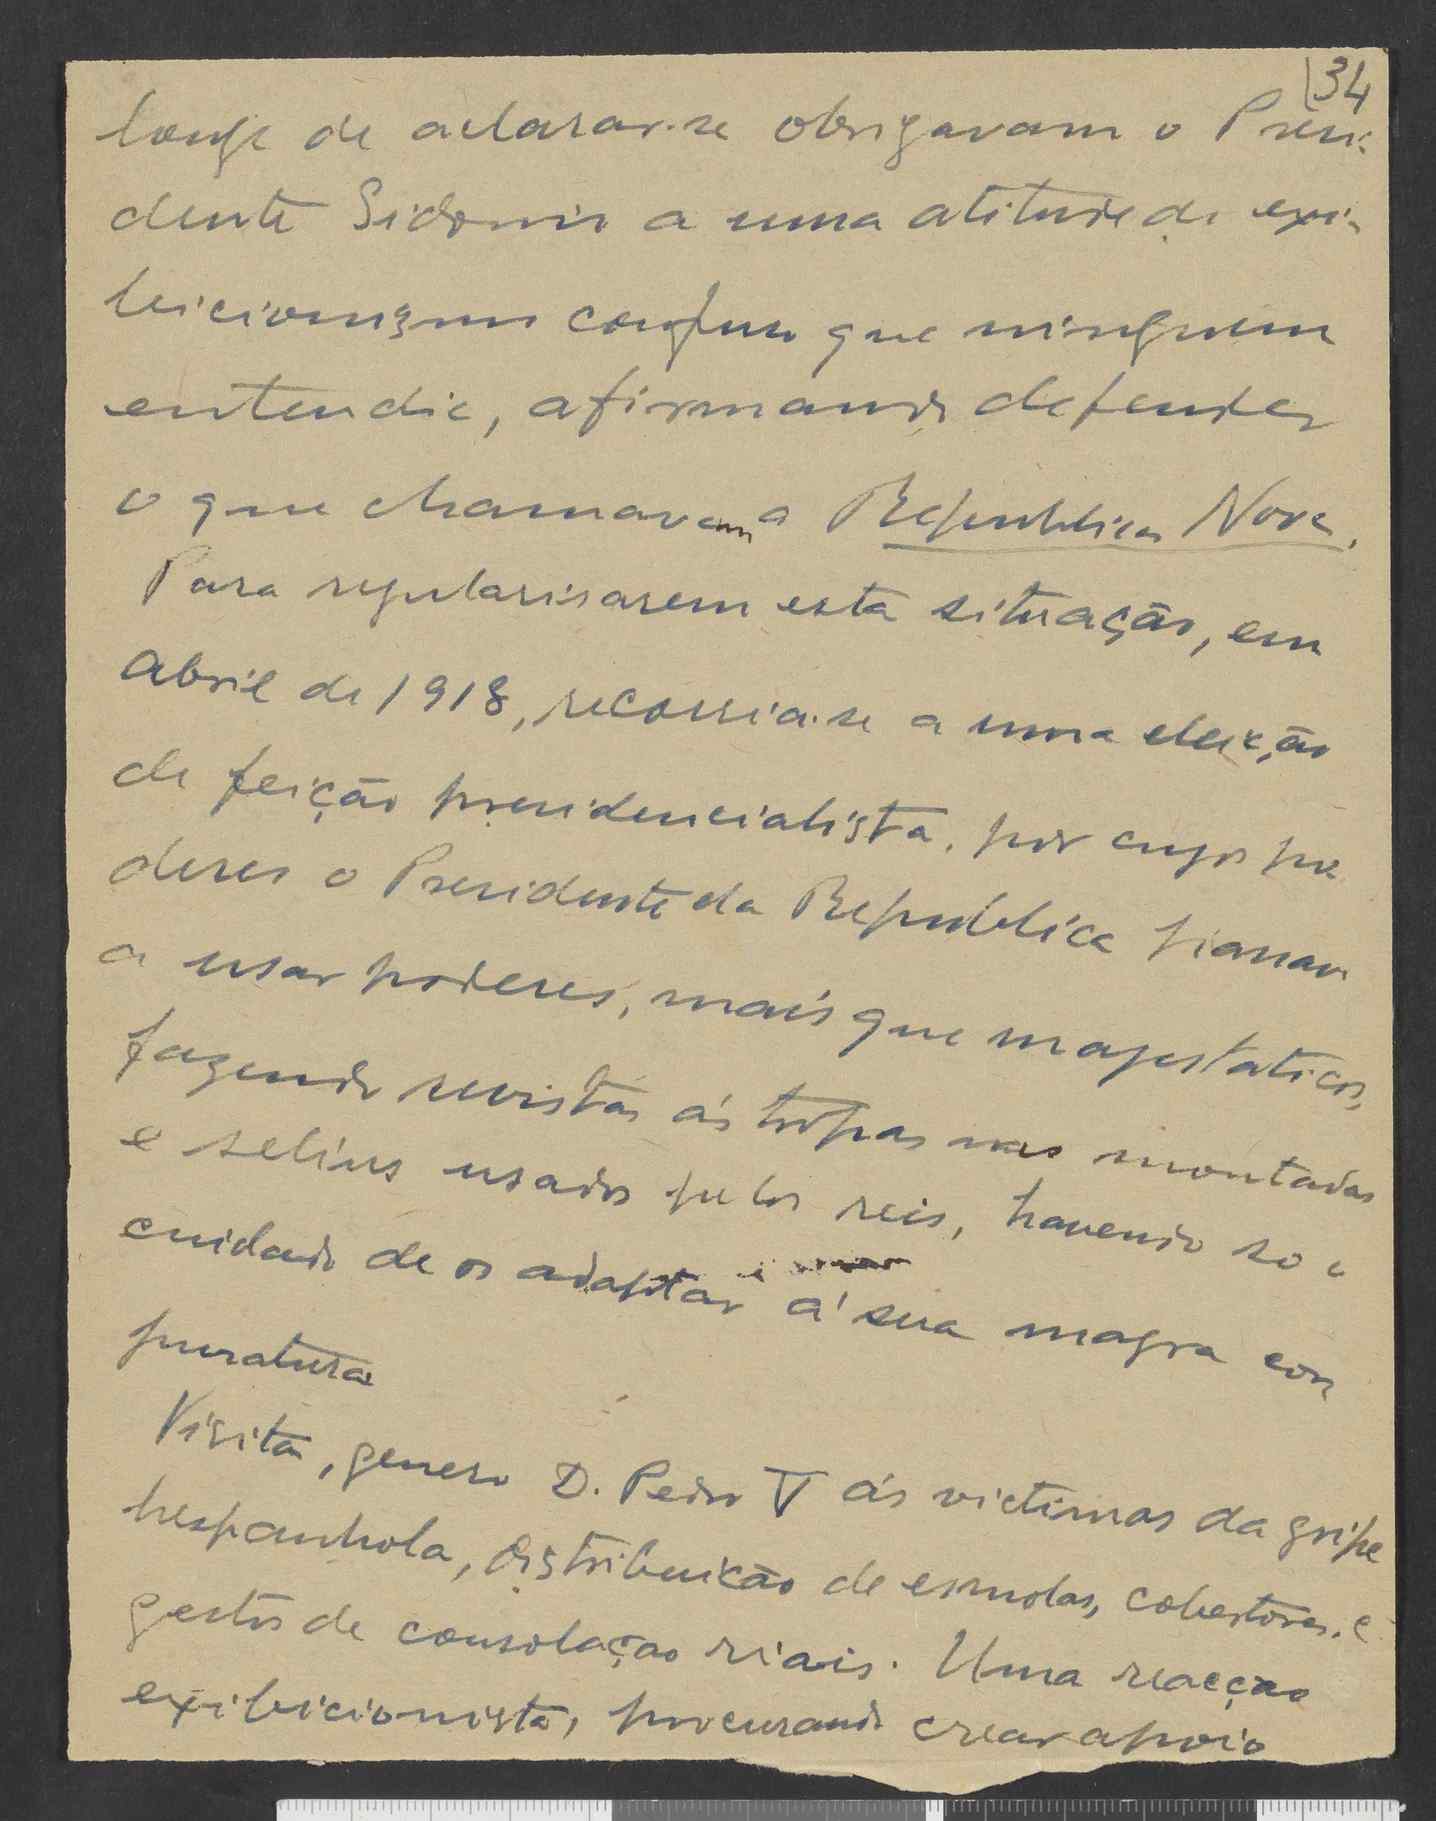 34
longe de aclarar-se obrigavam o Presi-
dente Sidonio a uma atitude de exi-
bicionizmo confuso que ninguem
entendia, afirmando defender
o que chamavam a Republica Nova.
Para regularisarem esta situação, em
Abril de 1918, recorria-se a uma eleição
de feição presidencialista, por cujos po
deres o Presidente da Republica
a usar poderes, mais que magestaticos,
fazendo revistas ás tropas nas montadas
e selins usados pelos reis, havendo so o
cuidado de os adaptar á sua magra con
puratura
Visita, genero D. Pedro V ás victimas da gripe
hespanhola, distribuição de esmolas, cobertores, e
gestos de consolaçao riais. Uma reacção
exibicionista, procurando crear apoio